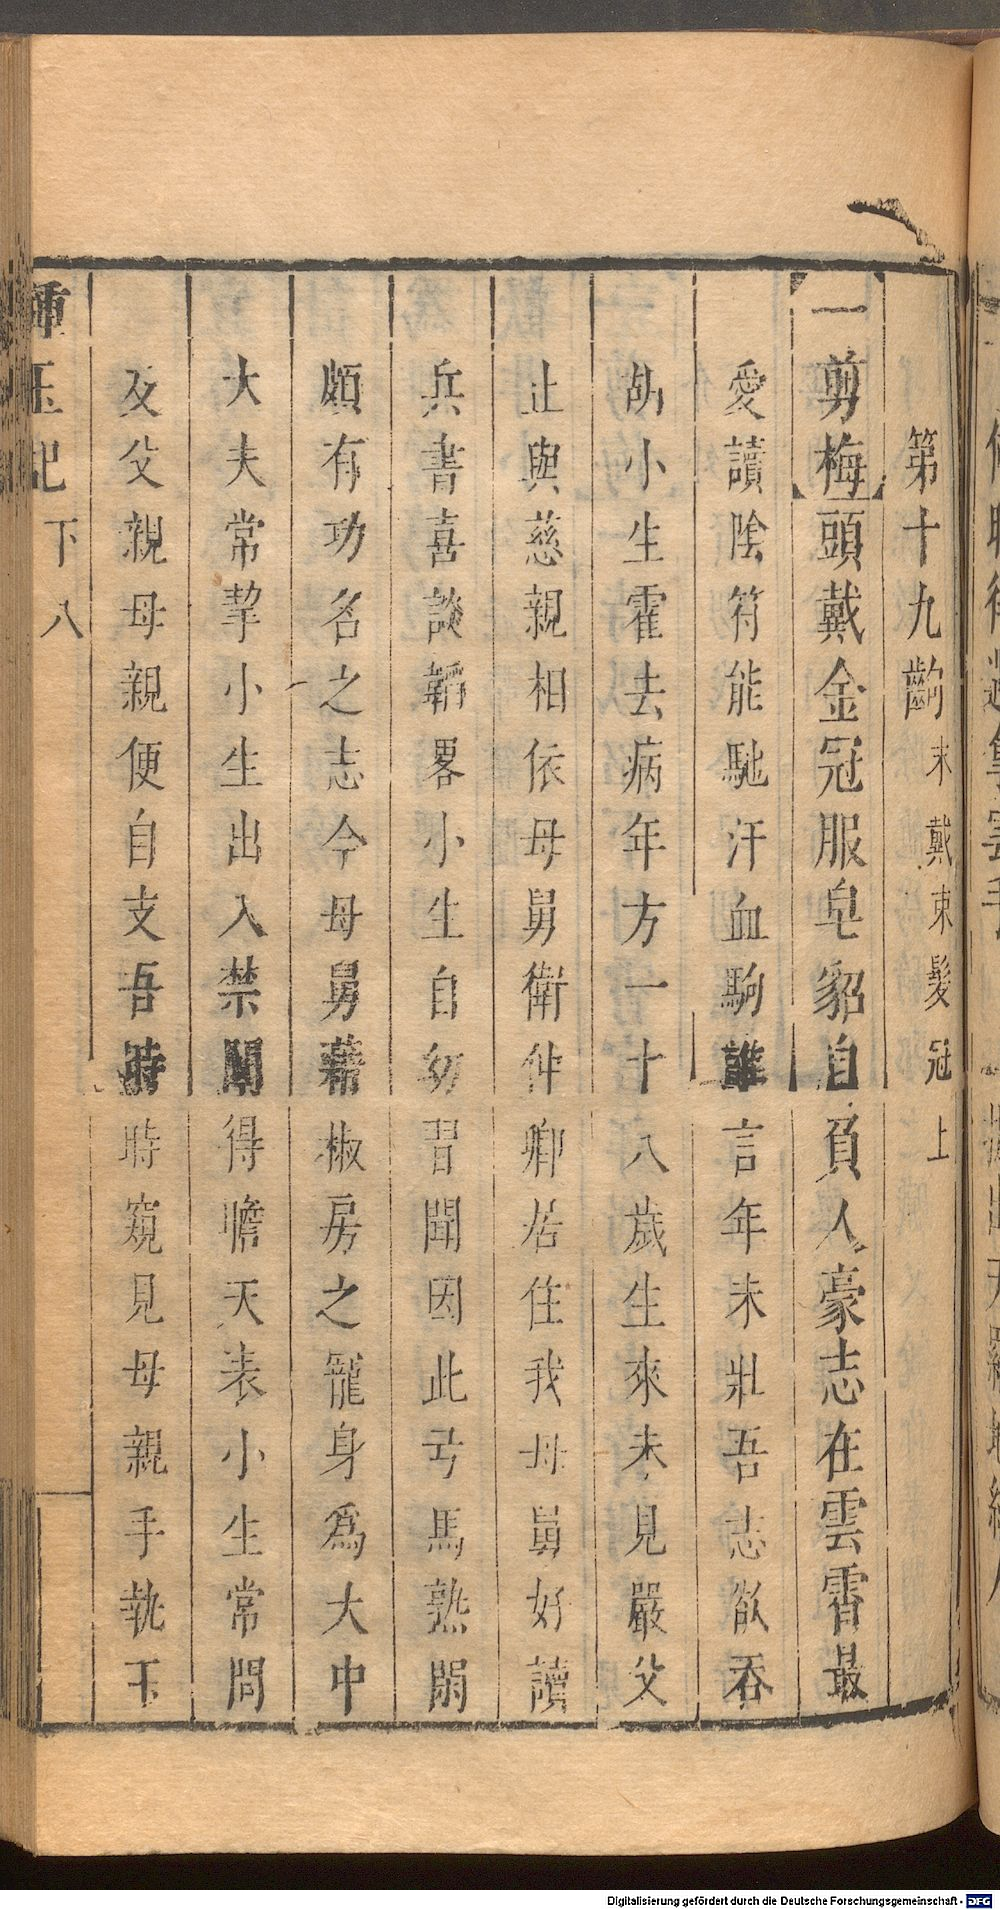 第十九齣 末戴束髮冠上
一剪梅頭戴金冠服皂貂自負人豪志在雲霄最
愛讀陰符能馳汗血駒誰言年未壯吾志欲吞
胡小生霍去病年方一十八歲生來未見嚴父
止與慈親相依母舅衛仲卿居住我母舅好讀
兵書喜談韜畧小生自幼習聞因此弓馬熟閑
頗有功名之志今母舅藉椒房之寵身爲大中
大夫常挈小生出入禁闥得瞻天表小生常問
及父親母親便自支吾時時窺見母親手執玉
種玉記 下 八
Digitalisierung gefördert durch die Deutsche Forschungsgemeinschaft - DFG